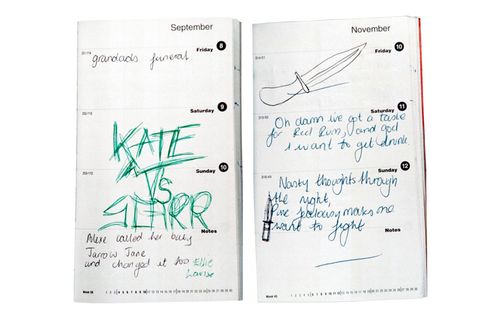 September
Friday 8
grandads funeral
Saturday 9
KATE
VS
Sunday 10
STARR
Notes
Alexe called her baby
Jarrow Jane
and changed it too Ellie
Louise
November
Friday 10
Saturday 11
Oh damn ive got a taste
for Red Rum, and god
i want to get drunk.
Sunday 12
Nasty thoughts through
the night,
Pure jealousy makes me
want to fight
Notes